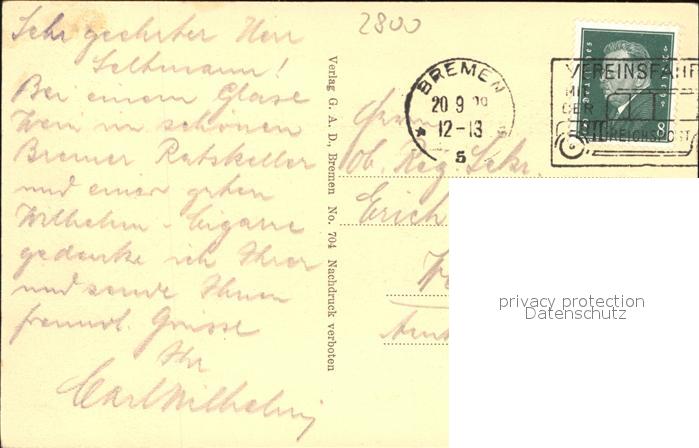 2800
Sehr geehrter Herr
Selbmann!
Bei einem Glase
Wein im schönen
Bremer Ratskeller
und einer guten
Wilhelm-Cigarre
gedenke ich Ihrer
und sende Ihnen
freundl. Grüsse
Ihr
Carl Wilhelmi
Verlag G. A. D., Bremen No. 704 Nachdruck verboten
BREMEN
20 9 29
12-13
5
VEREINSFAHR
MIT
DER
REICHSPOST
Deutsches
8
Herrn
Ob. Reg. Sekr.
Erich
privacy protection
Datenschutz